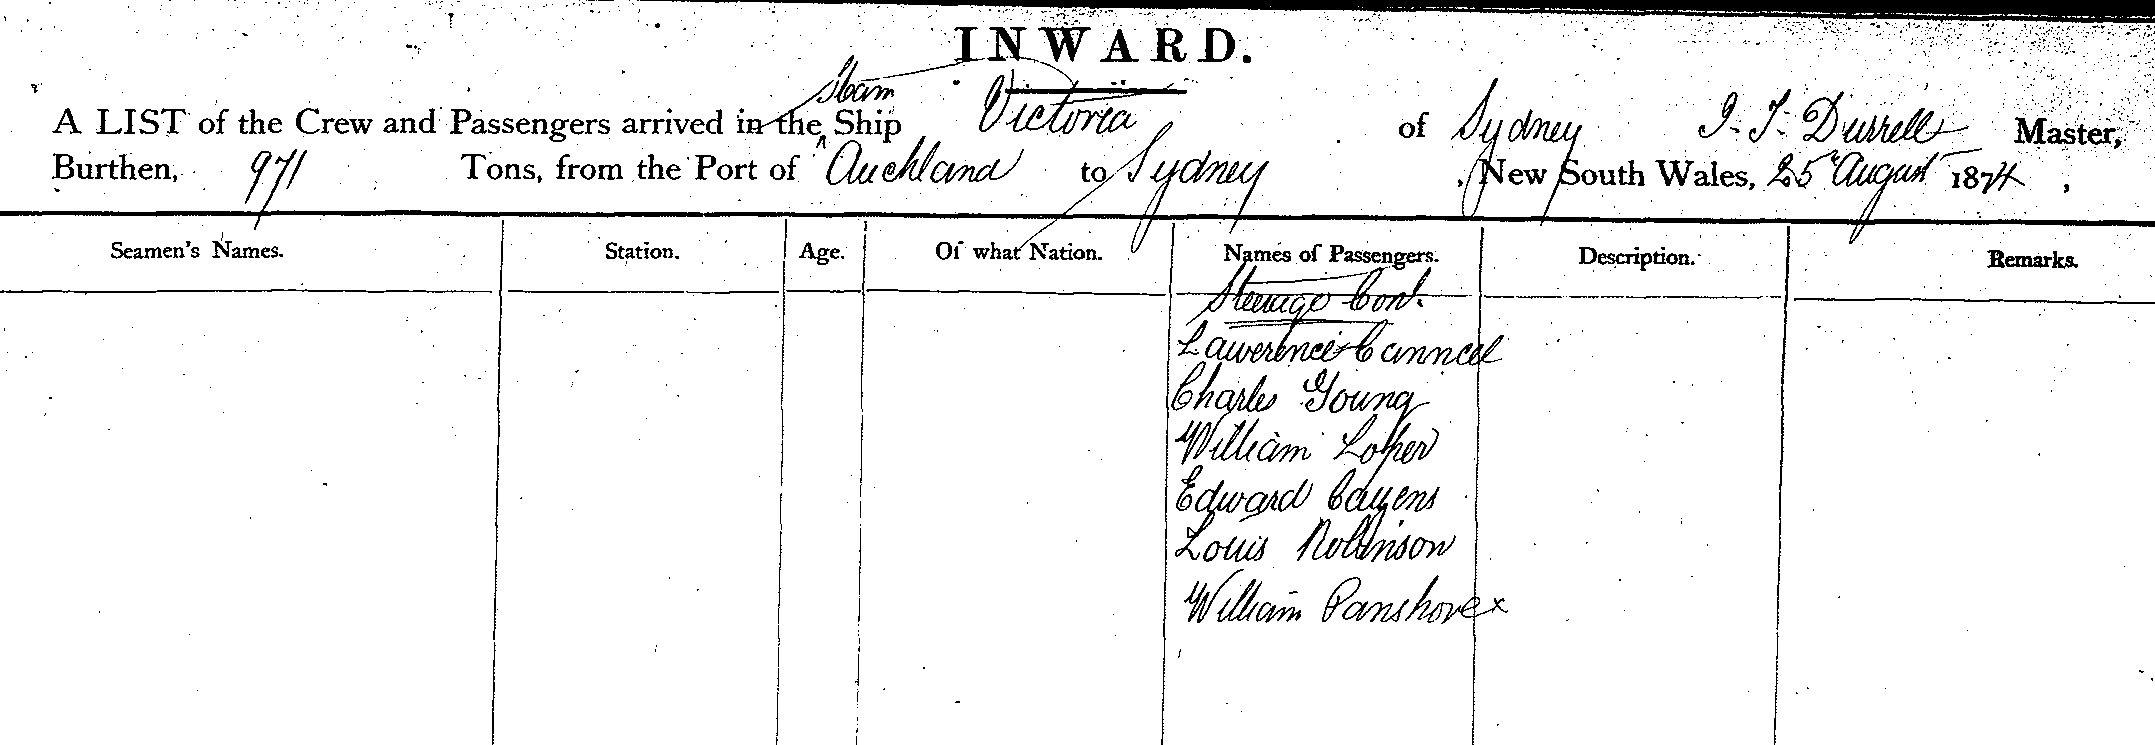 INWARD.
Steam
A LIST of the Crew and Passengers arrived in the Ship Victoria of Sydney J. T. Durrell Master,
Burthen, 971 Tons, from the Port of Auckland to Sydney, New South Wales, 25 August 1874,
Seamen's Names. Station. Age. Of what Nation. Names of Passengers. Description. Remarks.
Steerage Cont.
Lawerence Canneel
Charles Young
William Loper
Edward
Louis Robinson
William Panshove x